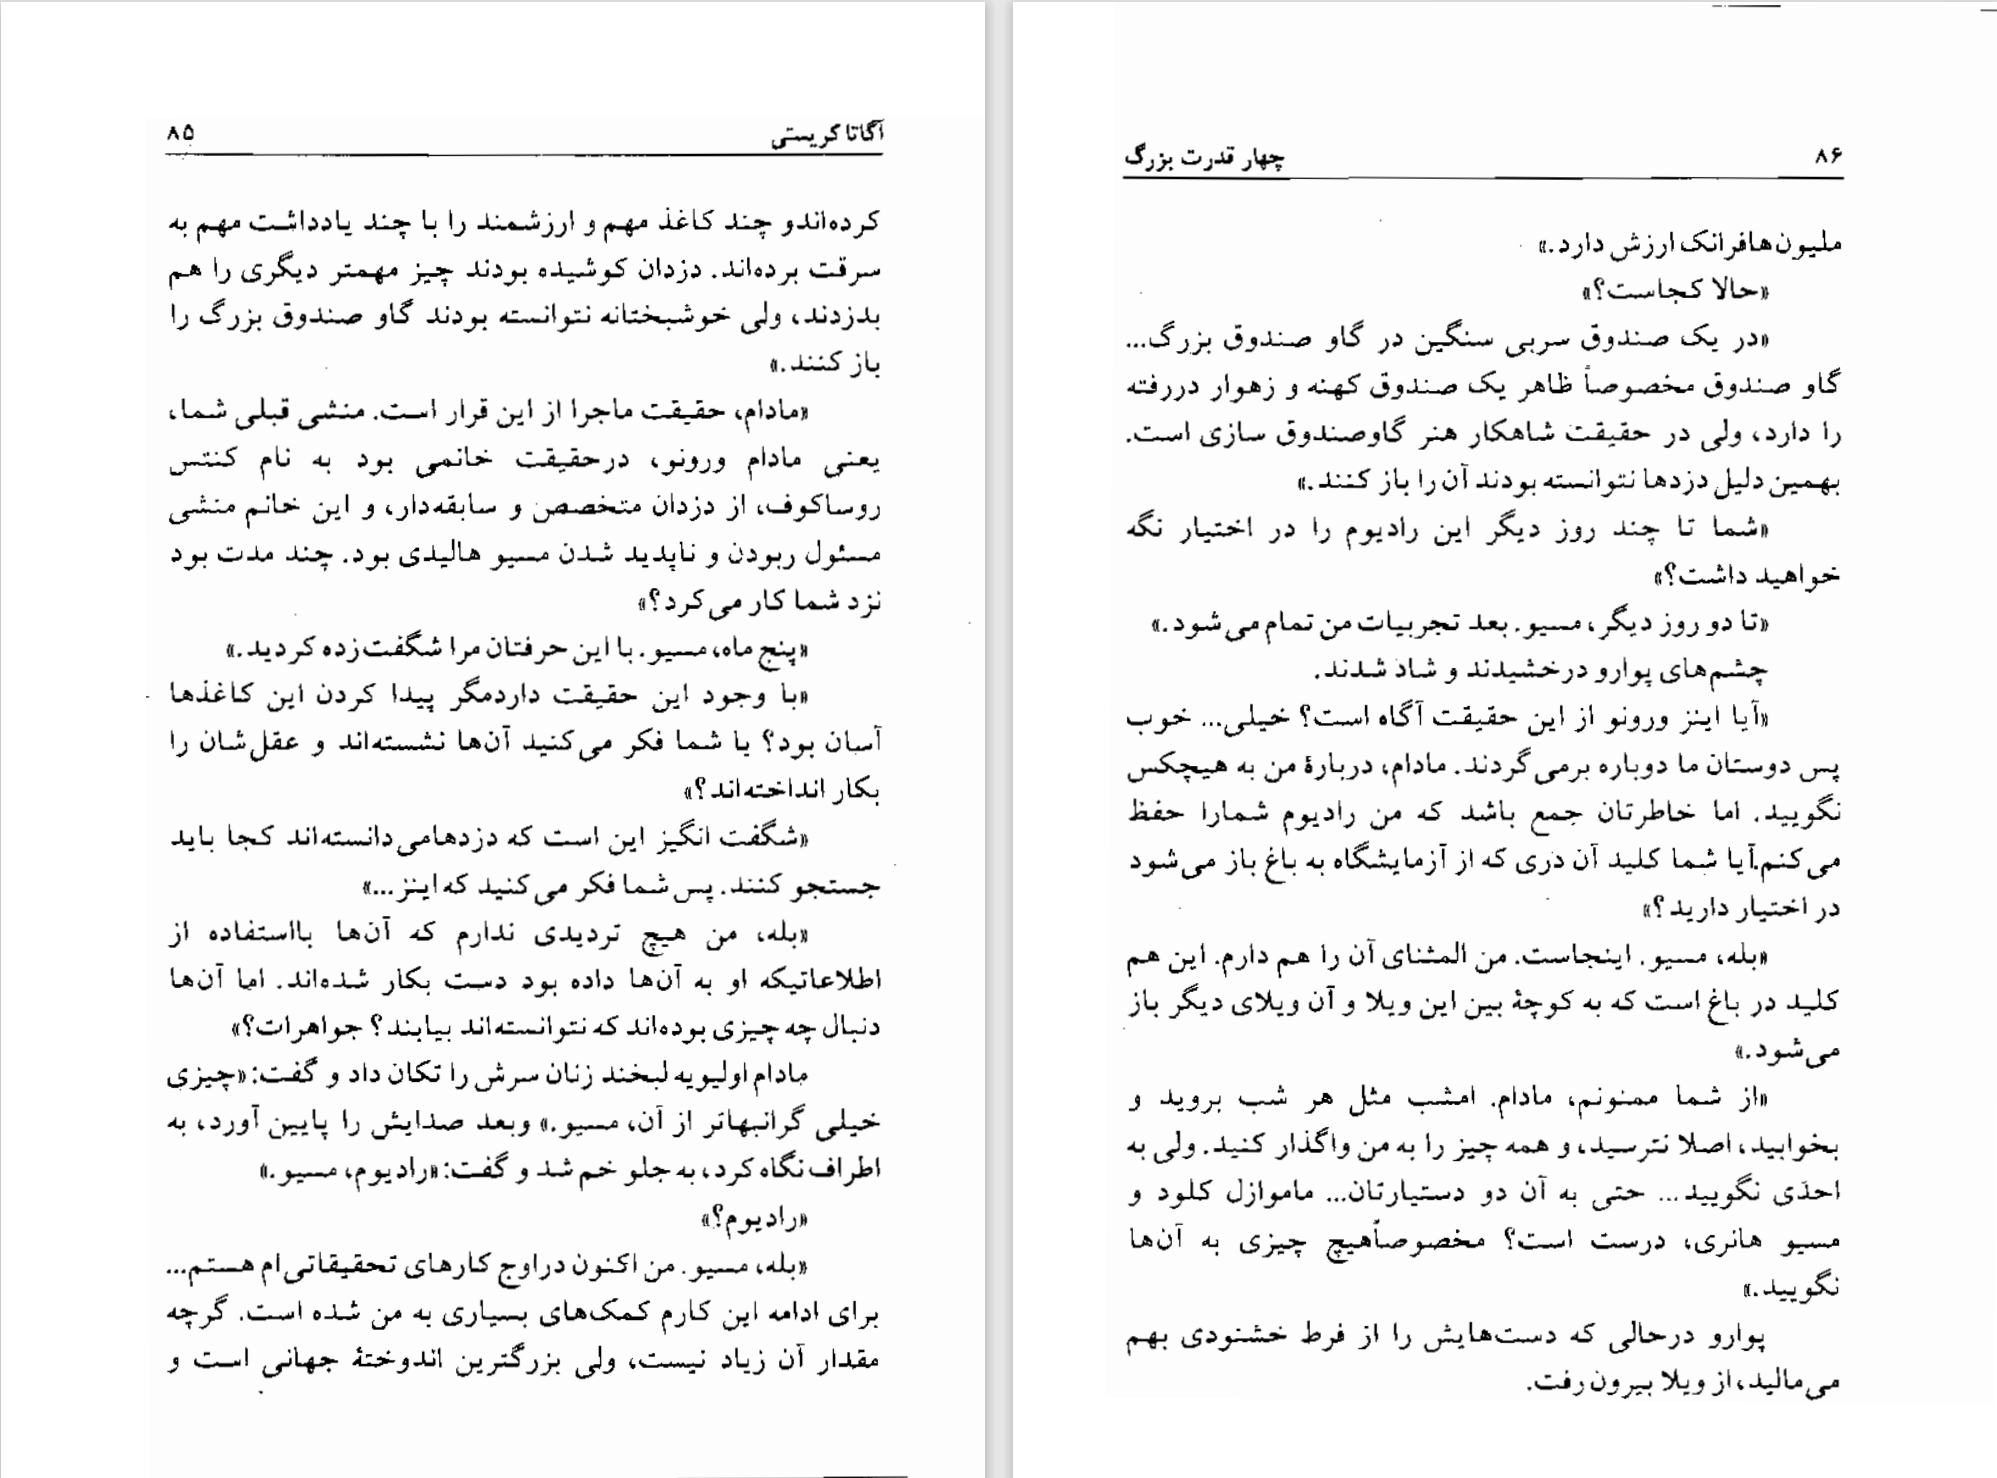 آگاتا کریستی ۸۵
کرده‌اندو چند کاغذ مهم و ارزشمند را با چند یادداشت مهم به
سرقت برده‌اند. دزدان کوشیده بودند چیز مهمتر دیگری را هم
بدزدند، ولی خوشبختانه نتوانسته بودند گاو صندوق بزرگ را
باز کنند.»
«مادام، حقیقت ماجرا از این قرار است. منشی قبلی شما،
یعنی مادام ورونو، درحقیقت خانمی بود به نام کنتس
روساکوف، از دزدان متخصص و سابقه‌دار، و این خانم منشی
مسئول ربودن و ناپدید شدن مسیو هالیدی بود. چند مدت بود
نزد شما کار می‌کرد؟»
«پنج ماه، مسیو. با این حرفتان مرا شگفت‌زده کردید.»
«با وجود این حقیقت داردمگر پیدا کردن این کاغذها
آسان بود؟ یا شما فکر می‌کنید آن‌ها نشسته‌اند و عقل‌شان را
بکار انداخته‌اند؟»
«شگفت انگیز این است که دزدهامی‌دانسته‌اند کجا باید
جستجو کنند. پس شما فکر می‌کنید که اینز...»
«بله، من هیچ تردیدی ندارم که آن‌ها بااستفاده از
اطلاعاتیکه او به آن‌ها داده بود دست بکار شده‌اند. اما آن‌ها
دنبال چه چیزی بوده‌اند که نتوانسته‌اند بیابند؟ جواهرات؟»
مادام اولیویه لبخند زنان سرش را تکان داد و گفت:«چیزی
خیلی گرانبهاتر از آن، مسیو.» وبعد صدایش را پایین آورد، به
اطراف نگاه کرد، به جلو خم شد و گفت:«رادیوم، مسیو.»
«رادیوم؟»
«بله، مسیو. من اکنون دراوج کارهای تحقیقاتی‌ام هستم...
برای ادامه این کارم کمک‌های بسیاری به من شده است. گرچه
مقدار آن زیاد نیست، ولی بزرگترین اندوختهٔ جهانی است و
۸۶ چهار قدرت بزرگ
ملیون‌هافرانک ارزش دارد.»
«حالا کجاست؟»
«در یک صندوق سربی سنگین در گاو صندوق بزرگ...
گاو صندوق مخصوصاً ظاهر یک صندوق کهنه و زهوار دررفته
را دارد، ولی در حقیقت شاهکار هنر گاوصندوق سازی است.
بهمین دلیل دزدها نتوانسته بودند آن را باز کنند.»
«شما تا چند روز دیگر این رادیوم را در اختیار نگه
خواهید داشت؟»
«تا دو روز دیگر، مسیو. بعد تجربیات من تمام می‌شود.»
چشم‌های پوارو درخشیدند و شاد شدند.
«آیا اینز ورونو از این حقیقت آگاه است؟ خیلی... خوب
پس دوستان ما دوباره برمی‌گردند. مادام، دربارهٔ من به هیچکس
نگویید. اما خاطرتان جمع باشد که من رادیوم شمارا حفظ
می‌کنم.آیا شما کلید آن دری که از آزمایشگاه به باغ باز می‌شود
در اختیار دارید؟»
«بله، مسیو. اینجاست. من المثنای آن را هم دارم. این هم
کلید در باغ است که به کوچهٔ بین این ویلا و آن ویلای دیگر باز
می‌شود.»
«از شما ممنونم، مادام. امشب مثل هر شب بروید و
بخوابید، اصلا نترسید، و همه چیز را به من واگذار کنید. ولی به
احدی نگویید... حتی به آن دو دستیارتان... ماموازل کلود و
مسیو هانری، درست است؟ مخصوصاًهیچ چیزی به آن‌ها
نگویید.»
پوارو درحالی که دست‌هایش را از فرط خشنودی بهم
می‌مالید، از ویلا بیرون رفت.